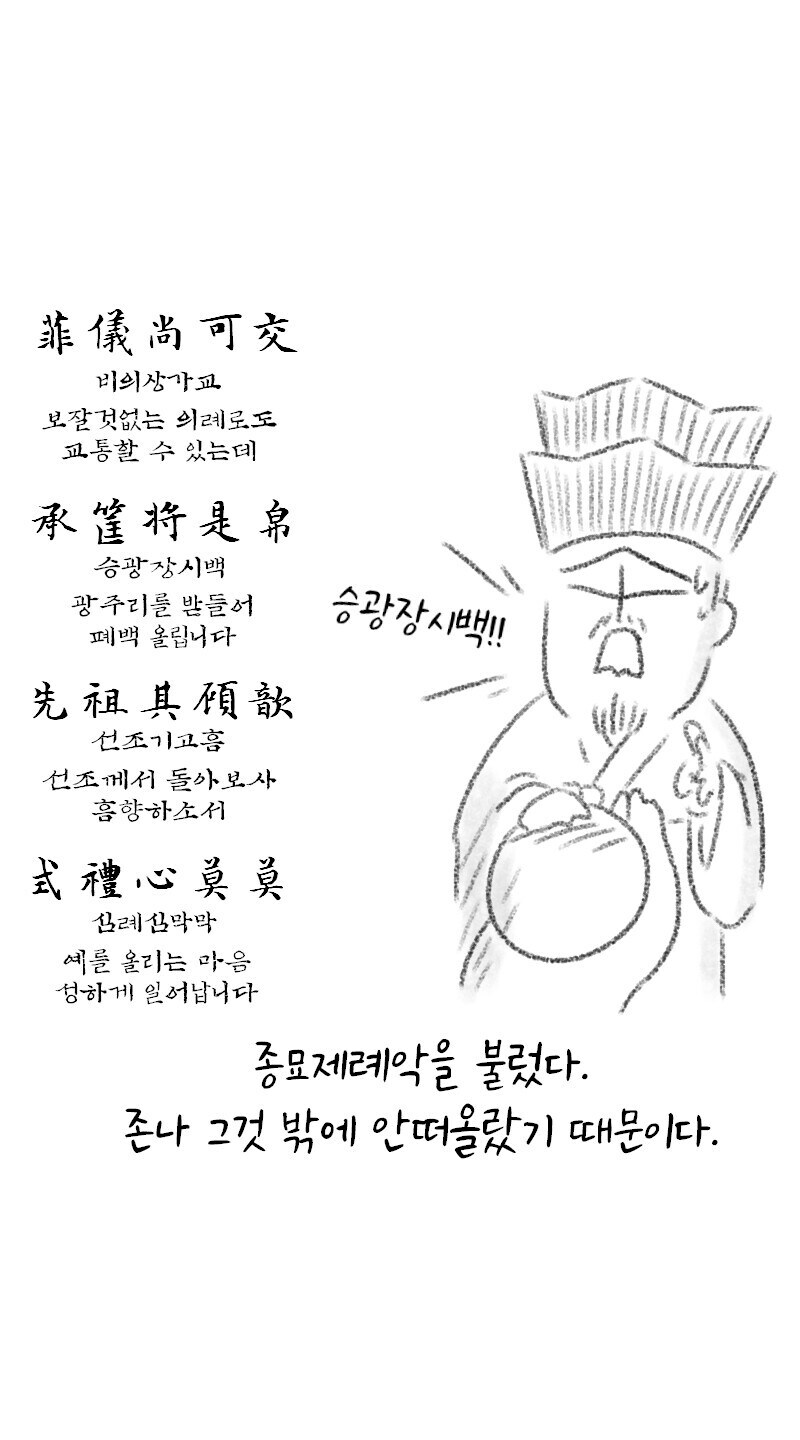 菲儀尚可交
비의상가교
보잘것없는 의례로도
교통할 수 있는데
承筐將是帛
승광장시백
광주리를 받들어
폐백 올립니다
先祖其頎歆
선조기고흠
선조께서 돌아보사
흠향하소서
式禮心莫莫
심례심막막
예를 올리는 마음
성하게 일어납니다
승광장시백!!
종묘제례악을 불렀다.
존나 그것 밖에 안떠올랐기 때문이다.